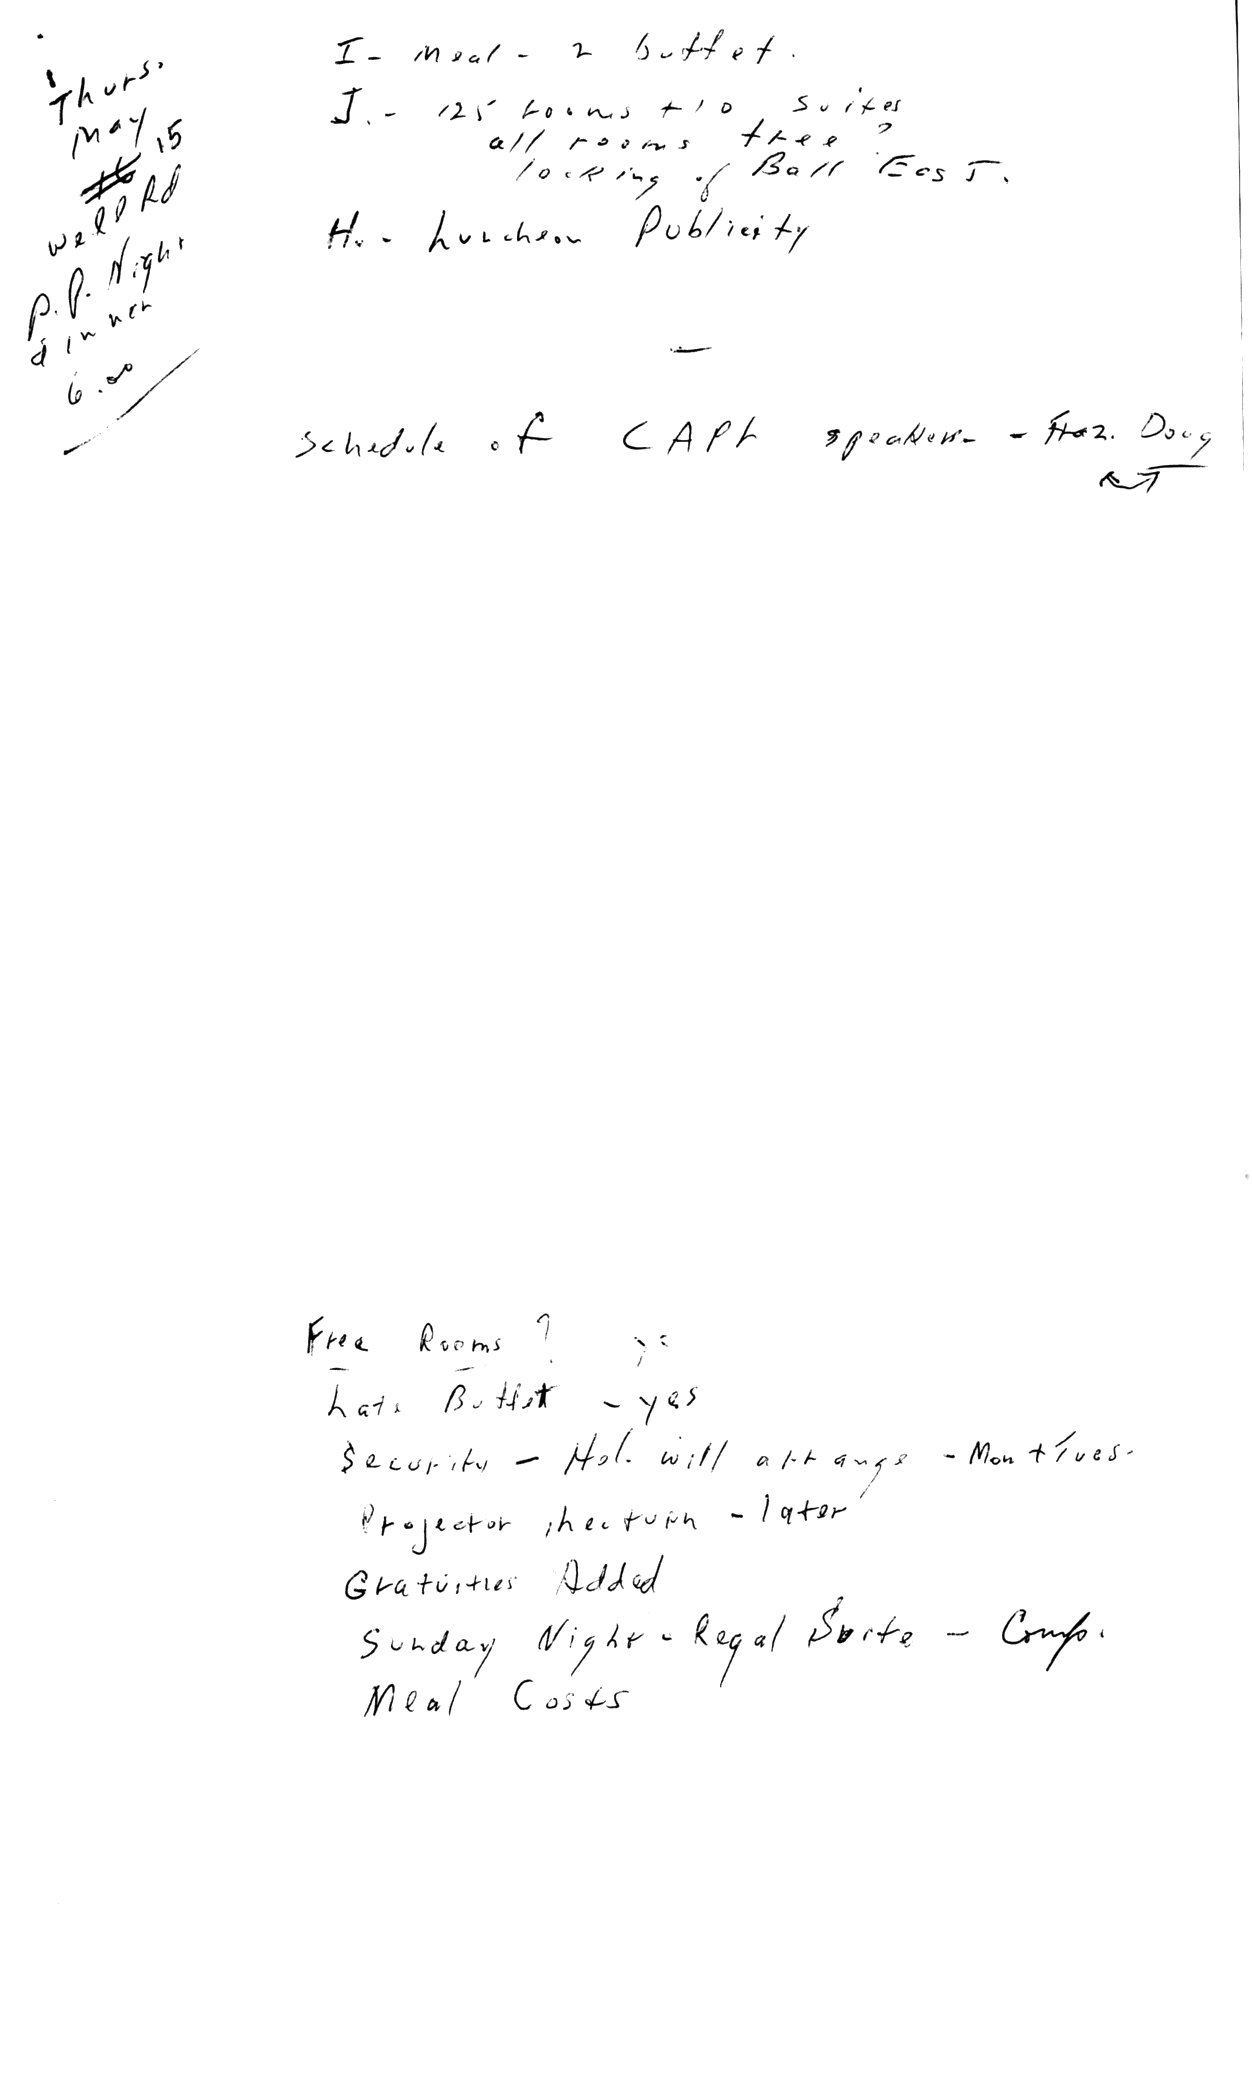 Thurs.
May
15
Well Rd
P.P. Night
dinner
6.00
I - Meal - 2 buffet.
J. - 125 rooms + 10 suites
all rooms free?
locking of Ball East.
H. - Luncheon Publicity
Schedule of speakers - Haz. Doug
Free Rooms?
Late Buffet - yes
Security - Hol. will arrange - Mon + Tues.
Projector - later
Gratuities Added
Sunday Night - Regal Suite - Comp.
Meal Costs